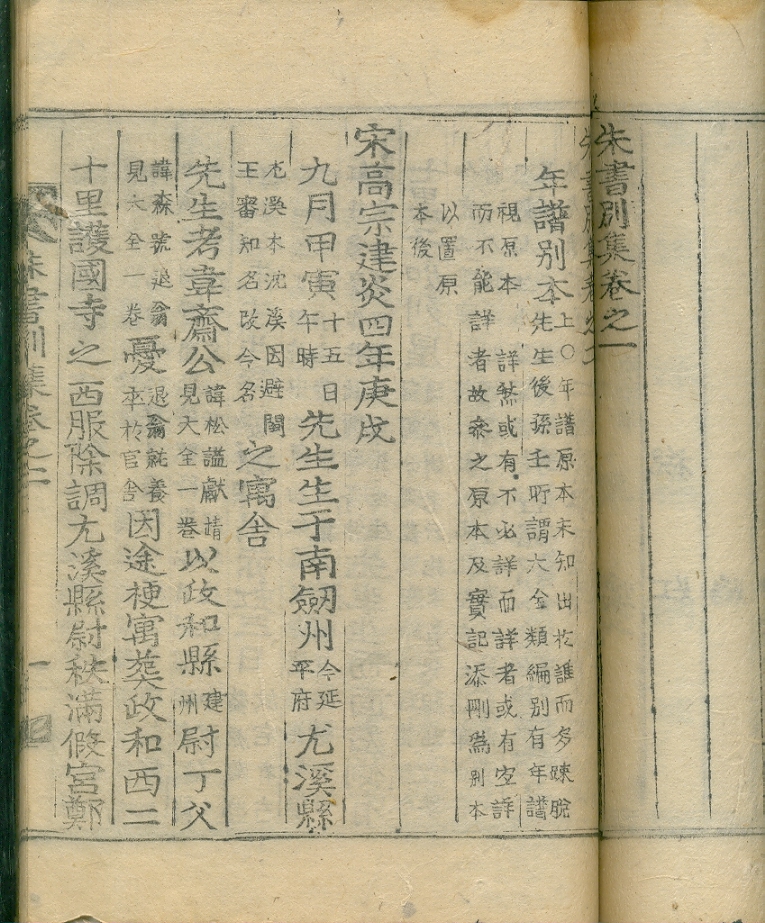 朱書別集卷之一
年譜別本上○年譜原本未知出於誰而多踈脫
先生後孫壬所謂大全類編別有年譜
視原本詳煞或有不必詳而詳者或有宜詳
而不能詳者故叅之原本及實記添刪爲別本
以置原
本後
宋高宗建炎四年庚戌
九月甲寅十五日午時先生生于南劒州今延平府尤溪縣
尤溪本沈溪因避閩王審知名改今名之寓舍
先生考韋齋公諱松謚獻靖見大全一卷以政和縣建州尉丁父
諱森號退翁見大全一卷憂退翁就養卒於官舍因途梗寓葬政和西二
十里護國寺之西服除調尤溪縣尉秩滿假宮鄭
朱書別集卷之一
一